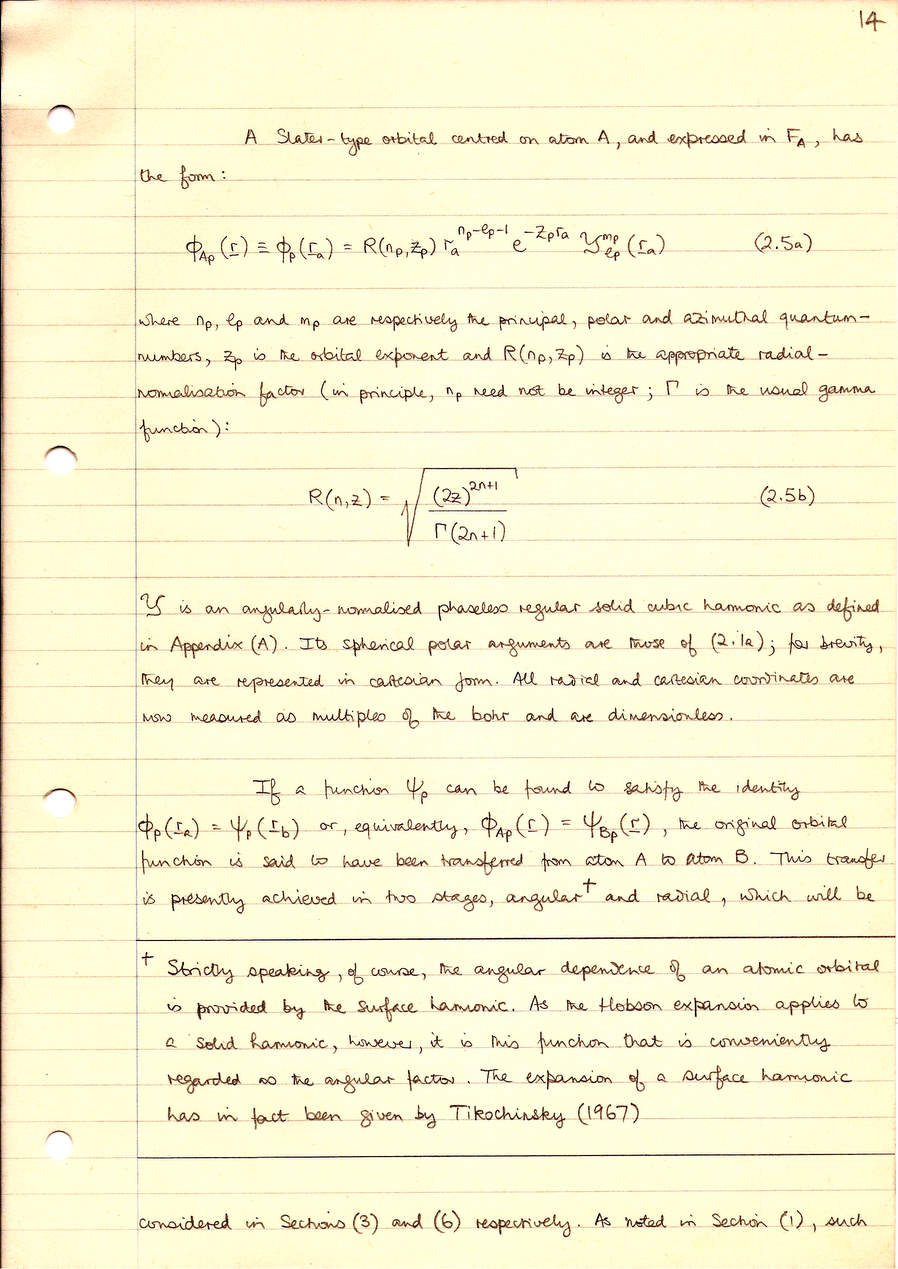 14
A Slater-type orbital centred on atom A, and expressed in F_A, has
the form:
ϕ_Ap (r) ≡ ϕ_p (r_a) = R(n_p, z_p) r_a^(n_p-ℓ_p-1) e^(-z_p r_a) 𝒴_ℓp^mp (r_a) (2.5a)
where n_p, ℓ_p and m_p are respectively the principal, polar and azimuthal quantum-
numbers, z_p is the orbital exponent and R(n_p, z_p) is the appropriate radial-
normalisation factor (in principle, n_p need not be integer; Γ is the usual gamma
function):
R(n,z) = √((2z)^(2n+1) / Γ(2n+1)) (2.5b)
𝒴 is an angularly-normalised phaseless regular solid cubic harmonic as defined
in Appendix (A). Its spherical polar arguments are those of (2.1a); for brevity,
they are represented in cartesian form. All radial and cartesian coordinates are
now measured as multiples of the bohr and are dimensionless.
If a function ψ_p can be found to satisfy the identity
ϕ_p (r_a) = ψ_p (r_b) or, equivalently, ϕ_Ap (r) = ψ_Bp (r), the original orbital
function is said to have been transferred from atom A to atom B. This transfer
is presently achieved in two stages, angular† and radial, which will be
† Strictly speaking, of course, the angular dependence of an atomic orbital
is provided by the surface harmonic. As the Hobson expansion applies to
a solid harmonic, however, it is this function that is conveniently
regarded as the angular factor. The expansion of a surface harmonic
has in fact been given by Tikochinsky (1967)
considered in Sections (3) and (6) respectively. As noted in Section (1), such